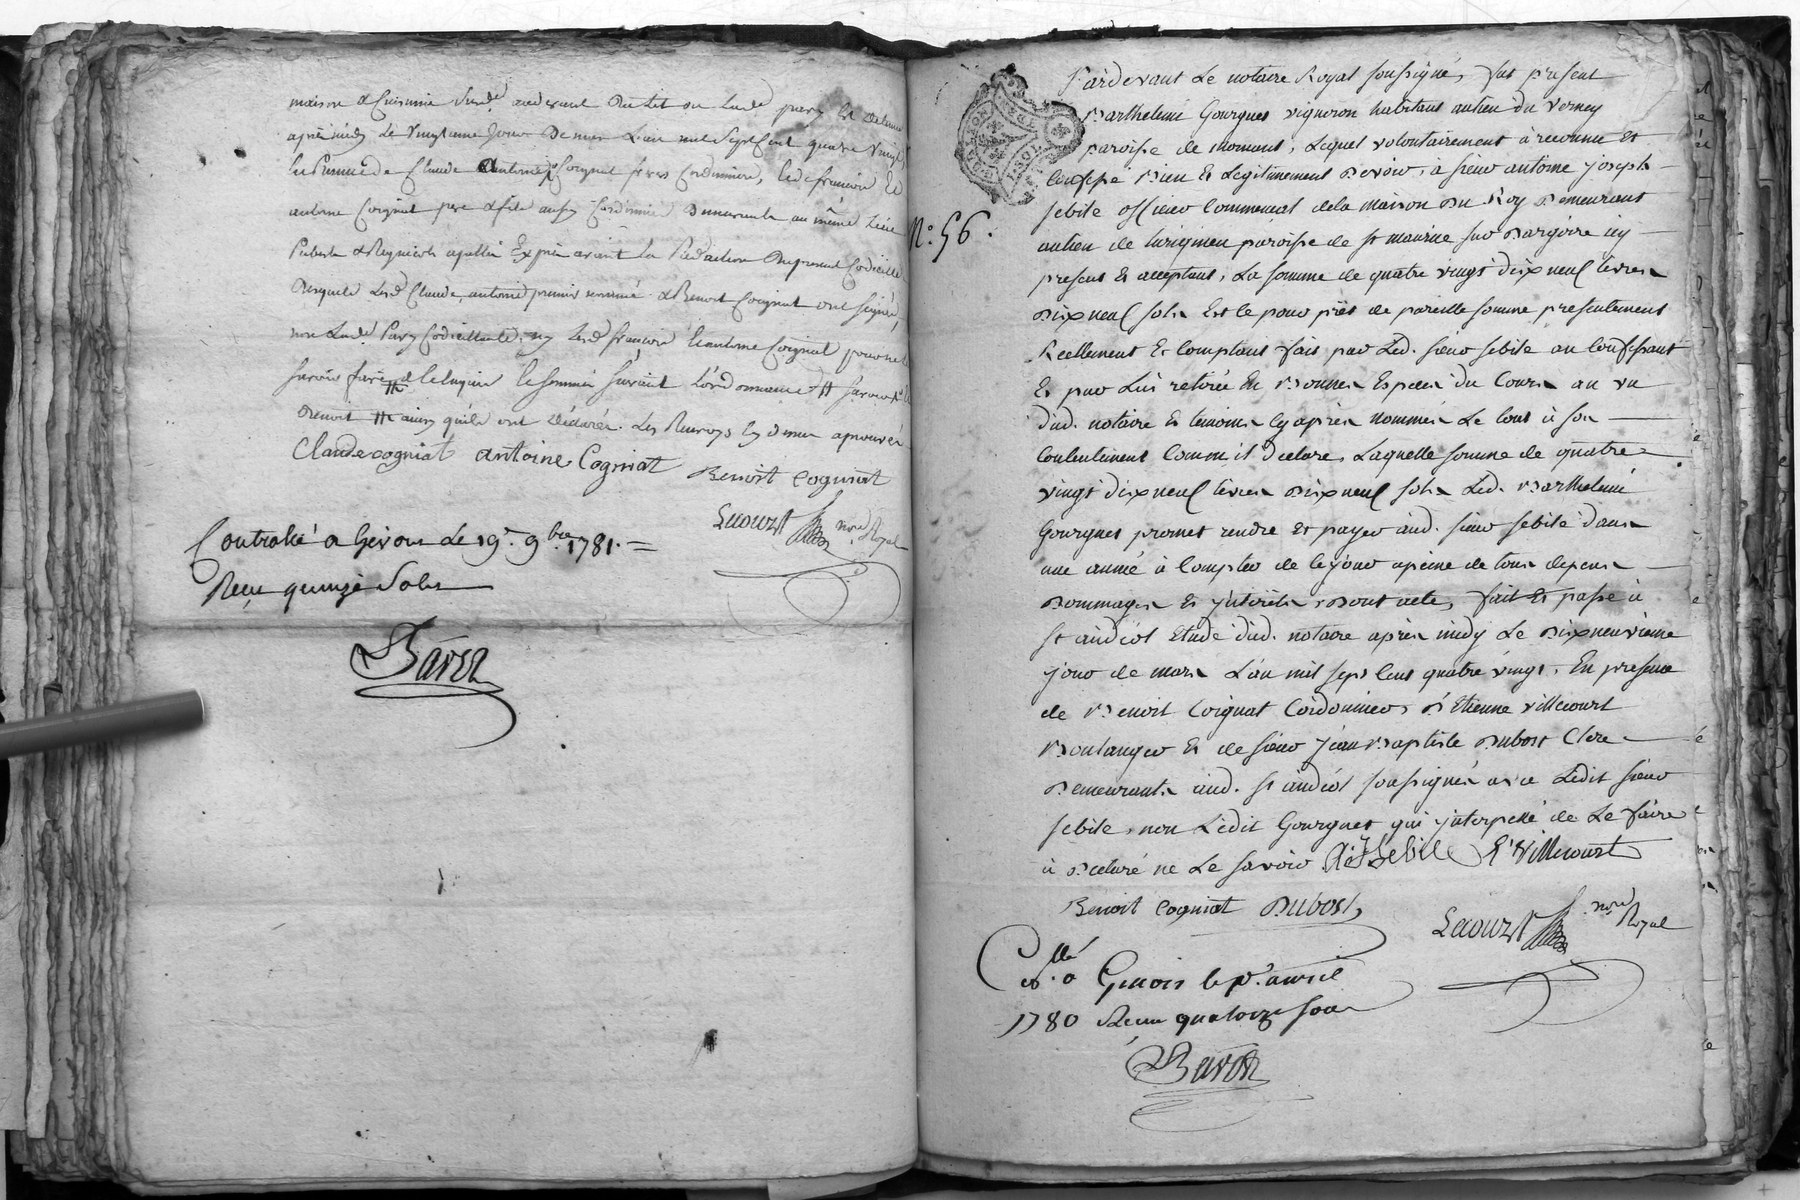 maison & cuisinne audevant du lit du pary la
après midy le vingtieme jour de mars l'an mil sept cent quatre vingt
en presence de Claude Antoine Coignat freres Cordonniers, led. françois &
antoine Coignat pere & fils aussy Cordonnier demeurants au même lieu
Exprès avant la Redaction du present Codicille
desquels led. Claude antoine premier nommé & Benoit Coignat ont signés,
non lad. Pary Codicillante, ny led. françois & antoine Coignat pour ne
savoir faire de le suivant l'ordonnance
Benoit ainsy qu'ils ont déclarés. Les Renvoys cy dessus aprouvés
Claude cogniat antoine Cogniat Benoit cogniat
Lecourt nre. Royal
Controllé a Givors le 19e. 9bre 1781. =
Reçu quinze Sols
Baron
Pardevant Le notaire Royal soussigné, fut present
Barthelemi Gourgues vigneron habitant au lieu du Verney
paroisse de mornant, Lequel volontairement à reconnu Et
Confessé Bien Et Legitimement Devoir, à sieur antoine joseph
sebile officier Commensal de la maison Du Roy Demeurant
N°. 56.
au lieu de paroisse de st maurice sur Dargoire icy
present Et acceptant, La somme de quatre vingt dix neuf livres
Dix neuf sols Et le pour prêt de pareille somme presentement
Réellement Et Comptant fait par Led. sieur sebile au Confessant
Et par Lui retirée En Bonnes Especes du Cours au vu
dud. notaire Et temoins Cy après nommés Le tout à son
Contentement Comme il declare, Laquelle somme de quatre
vingt dix neuf livres Dix neuf sols Led. Barthelemi
Gourgues promet rendre Et payer aud. sieur sebile dans
une année à Compter de ce jour à peine de tous depens
Dommages Et jnterêts Dont acte, fait Et passé à
st andéol Etude dud. notaire après midy Le Dix neuvieme
jour de mars L'an mil sept Cent quatre vingt, En presence
de Benoit Coignat Cordonnier, d'Etienne villecourt
Boulanger Et de sieur jean Baptiste Dubost Clerc
Demeurants aud. st andéol soussignés avec Ledit sieur
sebile, non Ledit Gourgues qui jnterpellé de Le faire
à Declaré ne Le savoir A: J Sebile E. Villecourt
Benoit cogniat Dubost,
Lecourt nre. Royal
Collé a Givors le pr. avril
1780 Recu quatorze sous
Baron